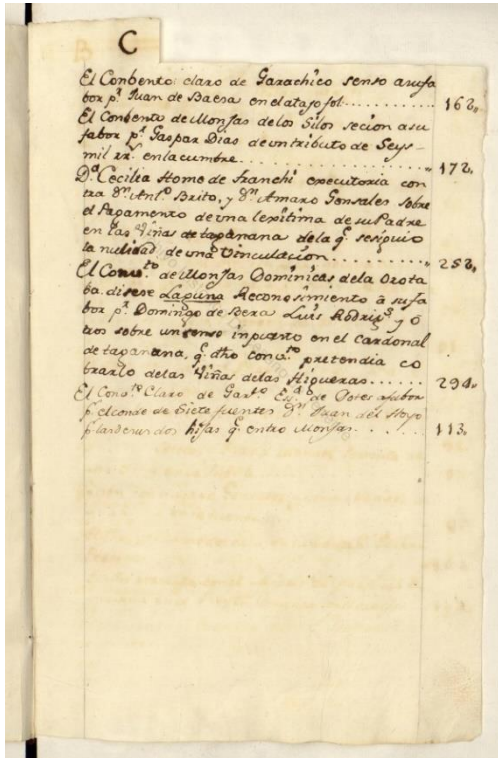 C
El Conbento: claro de Garachico senso a su fa
bor p.r Juan de Baesa en el atajo fol........... 162.
El Conbento de Monjas de los Silos secion a su
fabor p.r Gaspar Dias de un tributo de Seys
mil rr.s en la cumbre.................. 172.
D.a Cecilia Home de Franchi executoria con
tra D.n Ant.o Brito, y D.n Amaro Gonsales sobre
el Pagamento de una lexitima de su Padre
en las Viñas de taganana de la q.e se siguio
la nulidad de una Vinculacion.......... 252.
El Conv.to de Monjas Dominicas de la Orota
ba. disese Laguna Reconosimiento â su fa
bor p.r Domingo de Bera Luis Rodrig.s y ô
tros sobre un senso inpuesto en el cardonal
de taganana, q.e dho conv.to pretendia co
brarlo de las Viñas de las Higueras...... 294.
El Conv.to Claro de Gar.co de Dotes a su bor
p.r el conde de Siete fuentes D.n Juan del Hoyo
p.r las dos hijas q.e entro Monjas...... 113.